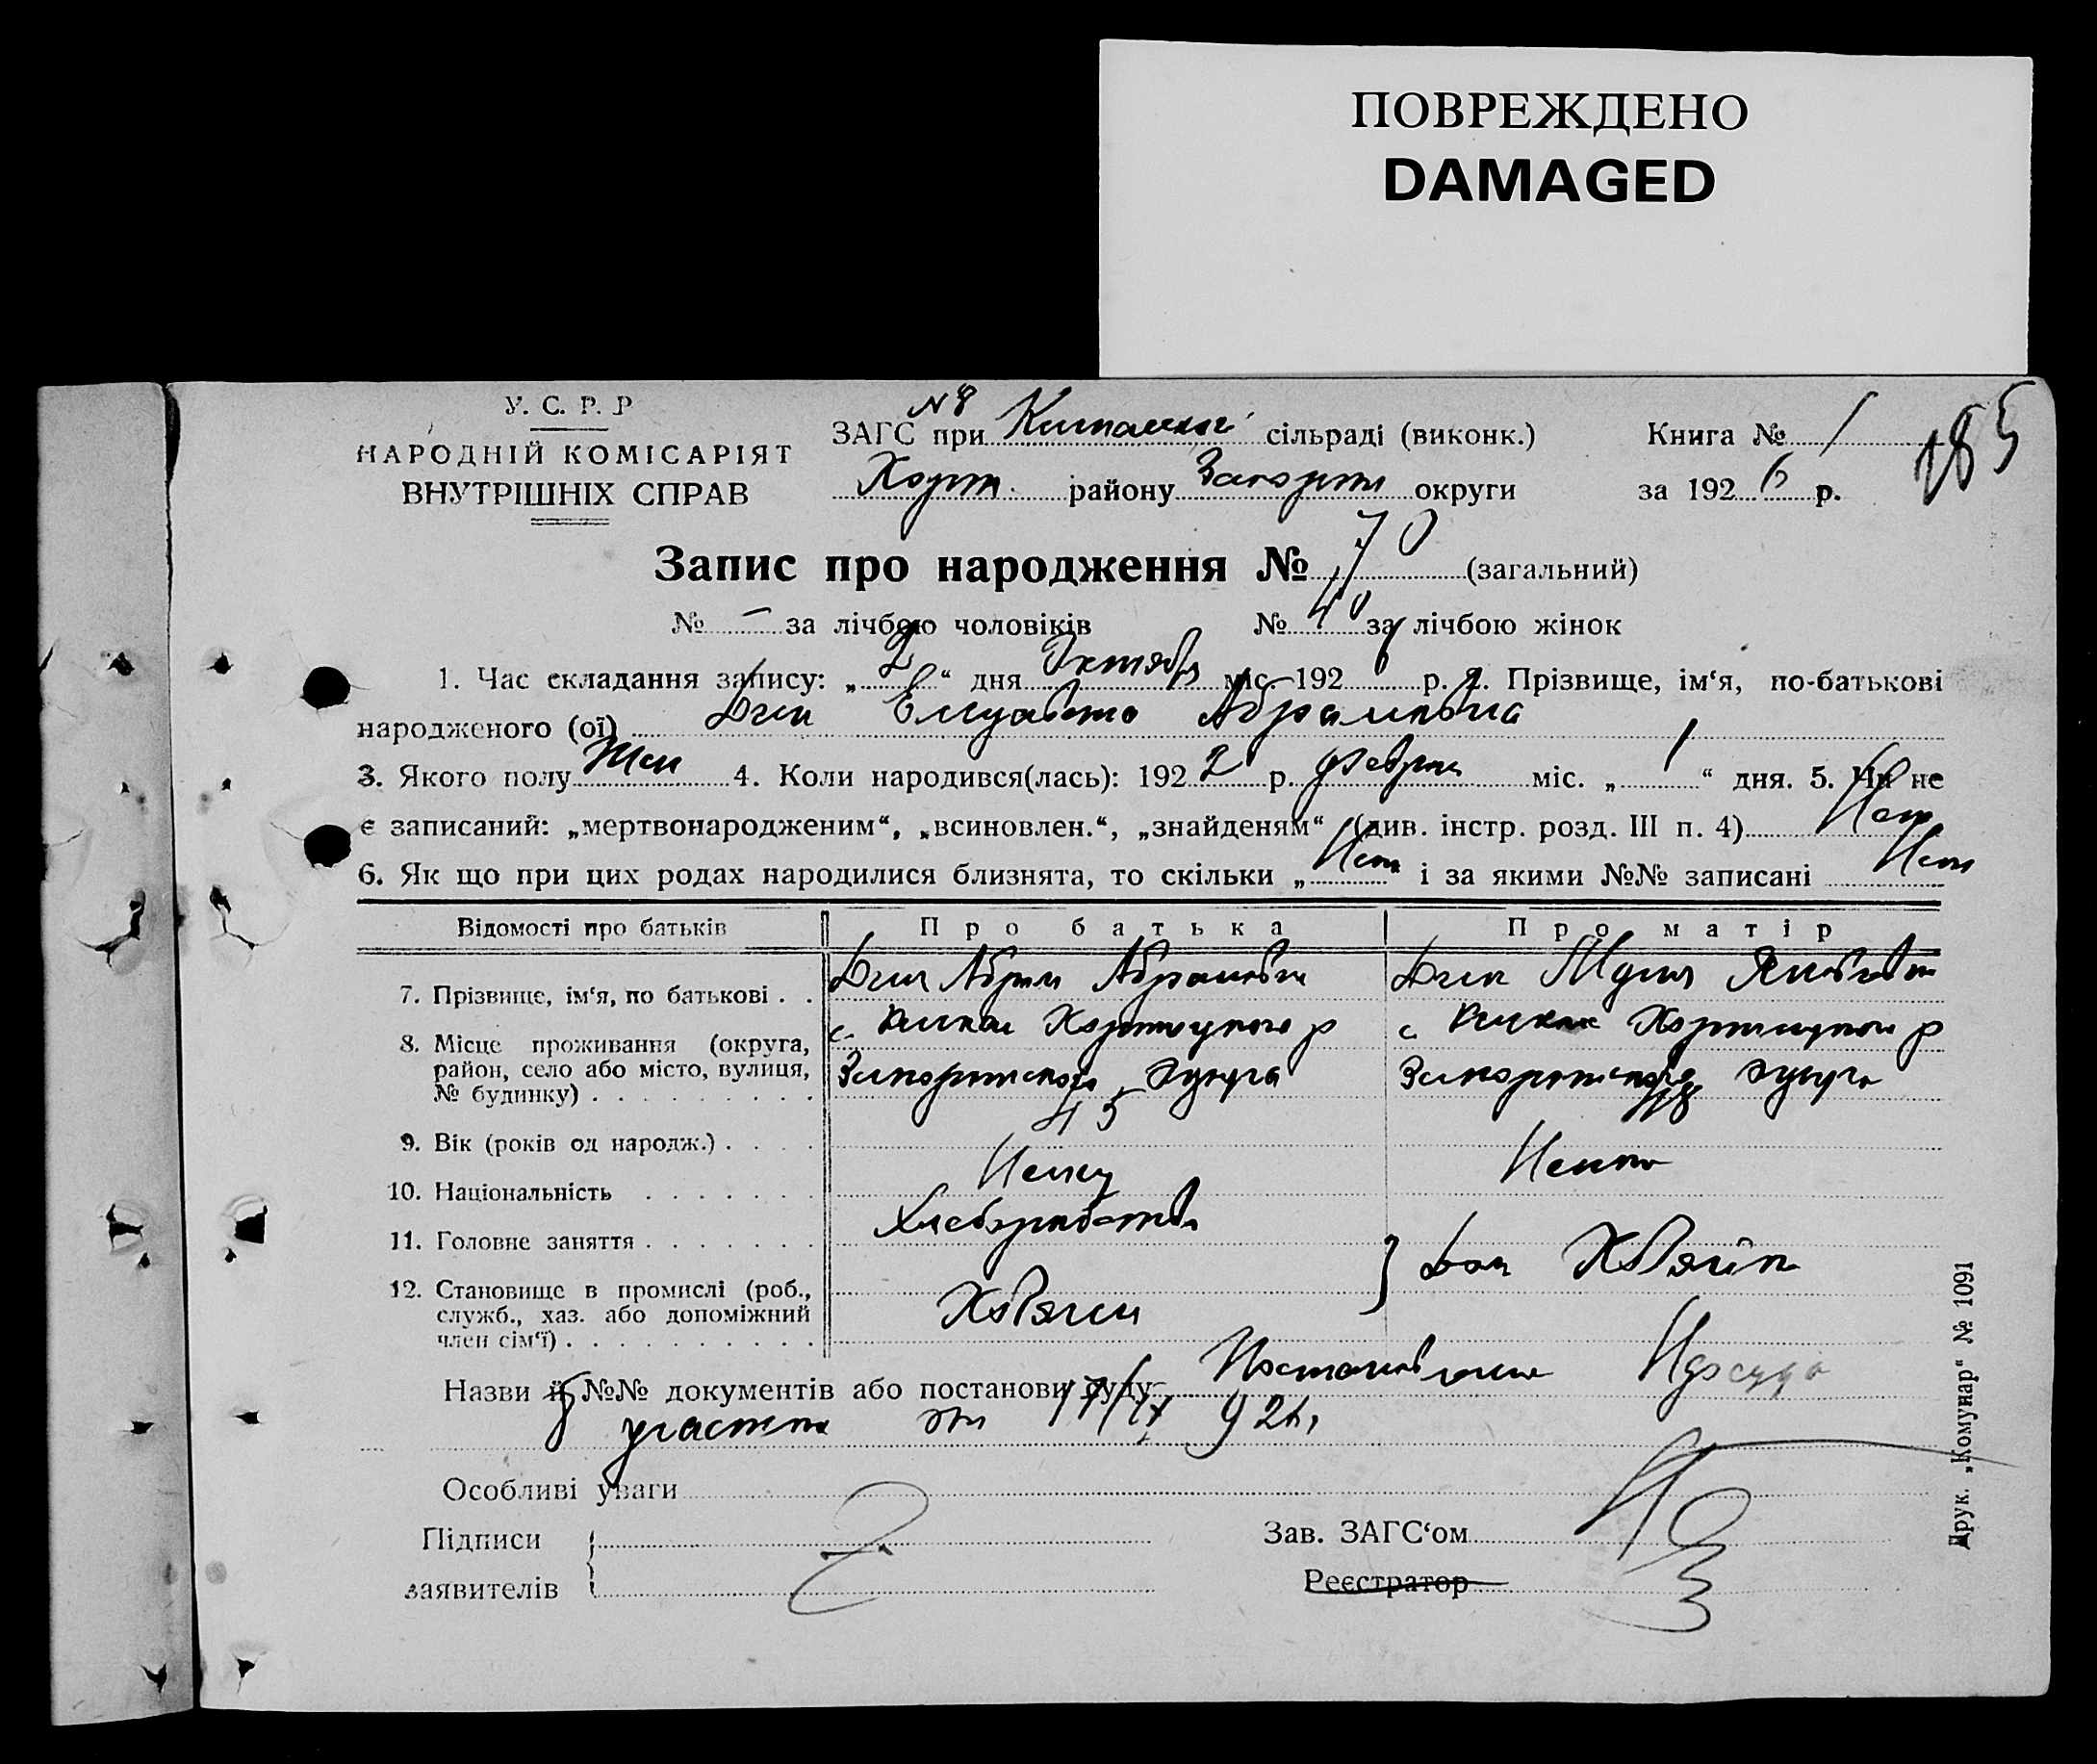 ПОВРЕЖДЕНО
DAMAGED
У. С. Р. Р
НАРОДНІЙ КОМІСАРІЯТ
ВНУТРІШНІХ СПРАВ
N 8
ЗАГС при сільраді (виконк.)
Хорт. району Запорож округи
Книга № 1
за 192 6 р.
185
Запис про народження № 70 (загальний)
№ – за лічбою чоловіків № 40 за лічбою жінок
1. Час складання запису: „ 2 “ дня Октября міс. 192 6 р. 2. Прізвище, ім‘я, по-батькові
народженого (ої) Дик Елизавета Абрамовна
3. Якого полу Жен 4. Коли народився(лась): 192 2 р. февраля міс. „ 1 “ дня. 5. Чи не
є записаний: „мертвонародженим“, „всиновлен.“, „знайденям“ (див. інстр. розд. III п. 4) Нет
6. Як що при цих родах народилися близнята, то скільки „ Нет “ і за якими №№ записані Нет
Відомості про батьків Про батька Про матір
7. Прізвище, ім‘я, по батькові . . Дик Абрам Абрамович Дик Мария Яковлевна
8. Місце проживання (округа, район, село або місто, вулиця, № будинку) . . . . . . . . .
с. Хортицкого р с Хортицкого р
Запорожского Округа Запорожского Округа
9. Вік (років од народж.) . . . . 45
10. Національність . . . . . . . Немец Немка
11. Головне заняття . . . . . . . Хлебопашество
12. Становище в промислі (роб., служб., хаз. або допоміжний член сім‘ї) . . . . . . . . . .
Хозяин } Дом Хозяйка
Назви й №№ документів або постанови суду Постановление Нарсуда
8 участка от 17/IX 926,
Особливі уваги
Підписи
заявителів
Зав. ЗАГС‘ом
Реєстратор
Друк. „Комунар“ № 1091